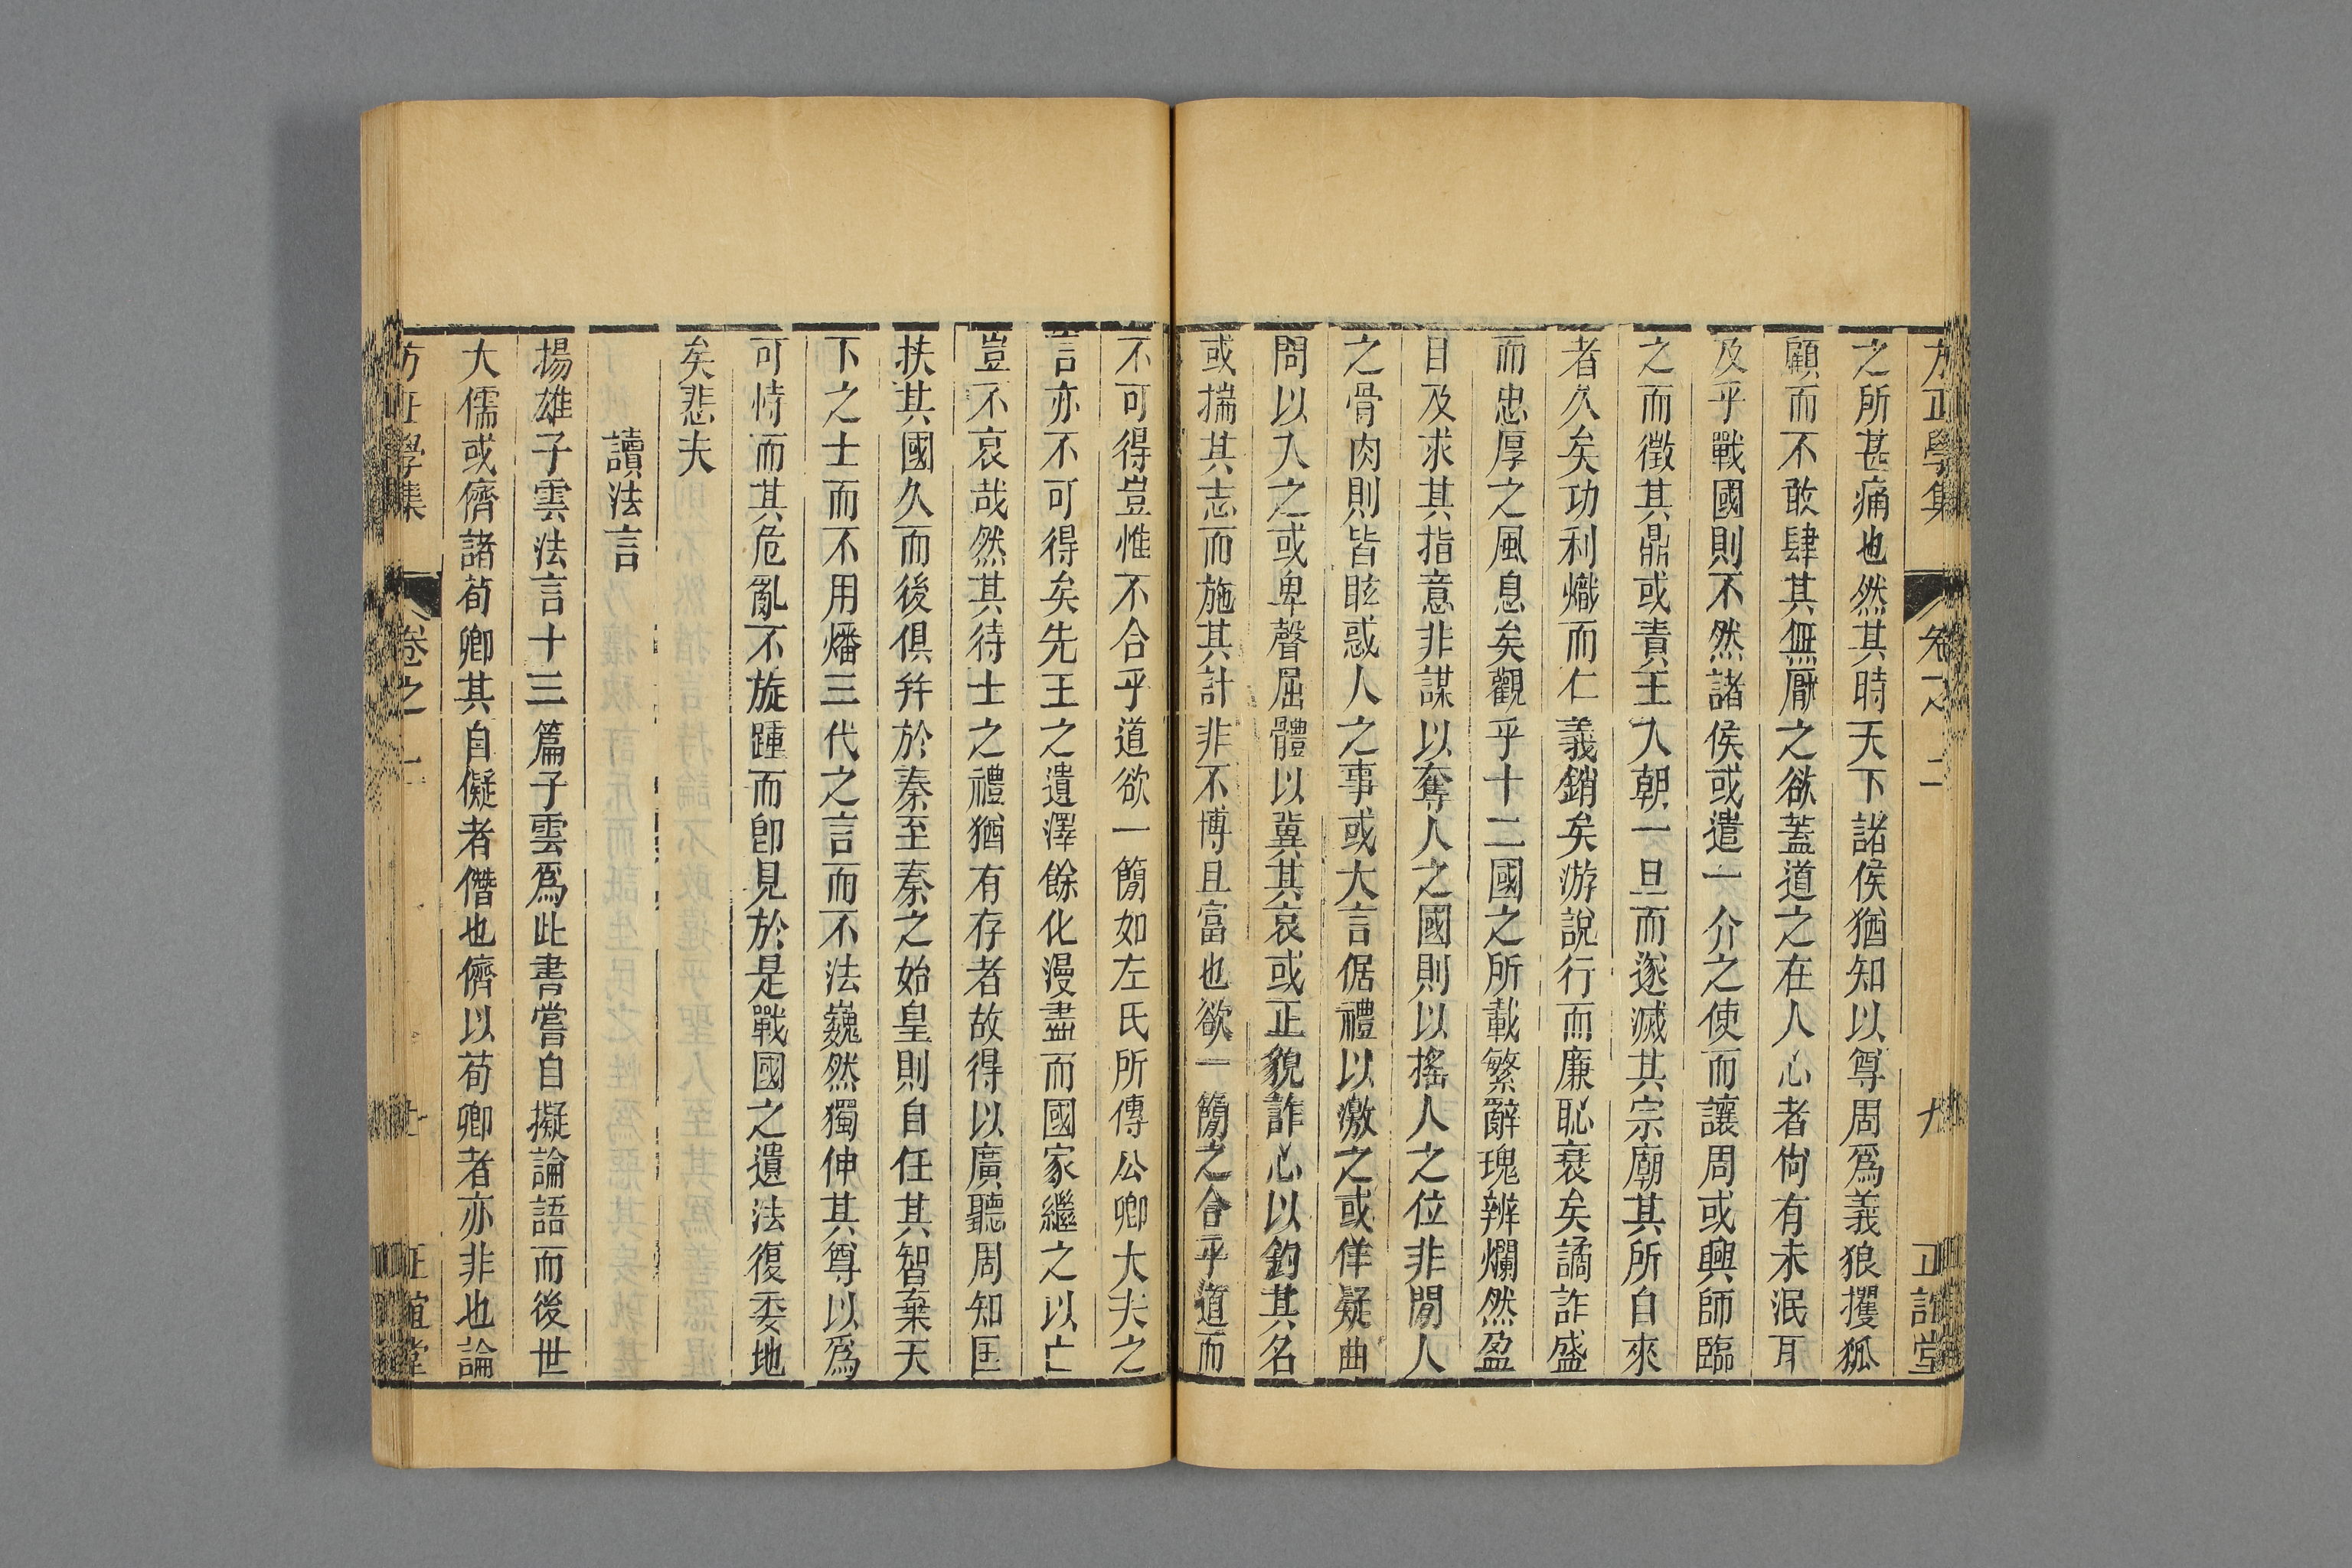 方正學集 卷之二 九 正誼堂
之所甚痛也然其時天下諸侯猶知以尊周爲義狼攫狐
顧而不敢肆其無厭之欲蓋道之在人心者尙有未泯耳
及乎戰國則不然諸侯或遣一介之使而讓周或興師臨
之而徵其鼎或責王入朝一旦而遂滅其宗廟其所自來
者久矣功利熾而仁義銷矣游說行而廉恥衰矣譎詐盛
而忠厚之風息矣觀乎十二國之所載繁辭瑰辨爛然盈
目及求其指意非謀以奪人之國則以搖人之位非閒人
之骨肉則皆眩惑人之事或大言倨禮以激之或佯疑曲
問以入之或卑聲屈體以冀其哀或正貌詐心以鈎其名
或揣其志而施其計非不博且富也欲一簡之合乎道而
不可得豈惟不合乎道欲一簡如左氏所傳公卿大夫之
言亦不可得矣先王之遺澤餘化漫盡而國家繼之以亡
豈不哀哉然其待士之禮猶有存者故得以廣聽周知匡
扶其國久而後俱并於秦至秦之始皇則自任其智棄天
下之士而不用燔三代之言而不法巍然獨伸其尊以爲
可恃而其危亂不旋踵而卽見於是戰國之遺法復委地
矣悲夫
讀法言
揚雄子雲法言十三篇子雲爲此書嘗自擬論語而後世
大儒或儕諸荀卿其自儗者僭也儕以荀卿者亦非也論
方正學集 卷之二 正誼堂